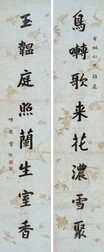 鳥囀歌来花濃雪聚
玉韞庭照蘭生室香